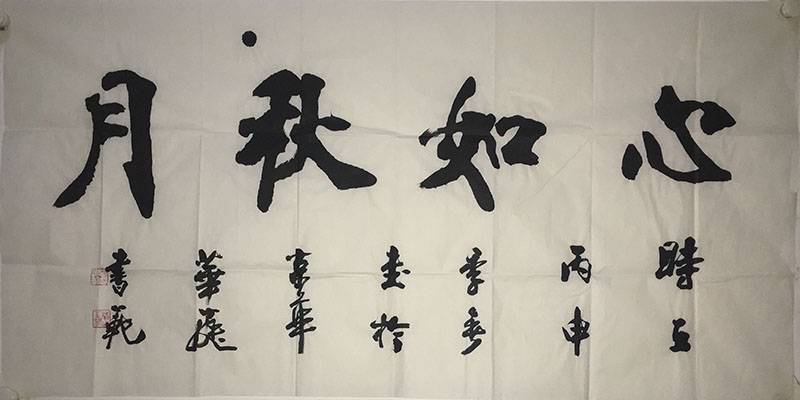 心如秋月
時在
丙申
季春
書於
京華
華
書範